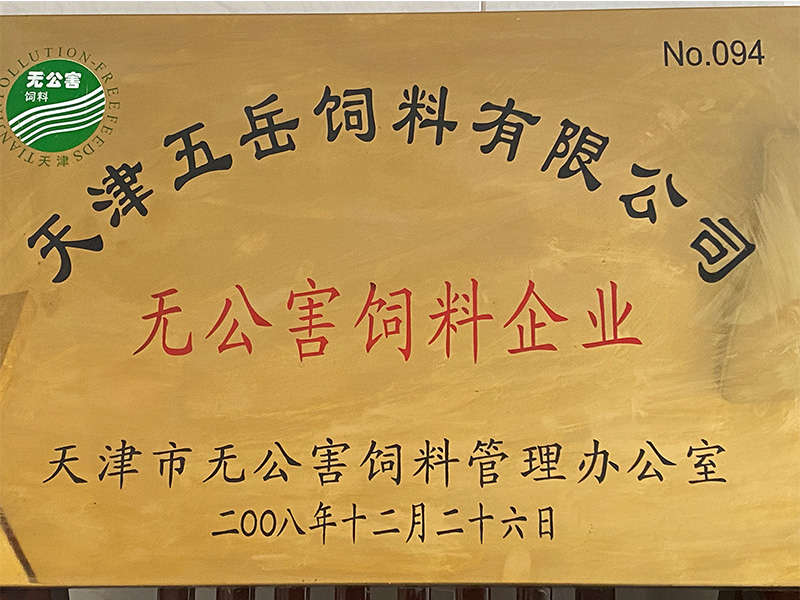 No.094
TIANJIN POLLUTION-FREE FEEDS
无公害
饲料
天津
天津五岳饲料有限公司
无公害饲料企业
天津市无公害饲料管理办公室
二〇〇八年十二月二十六日